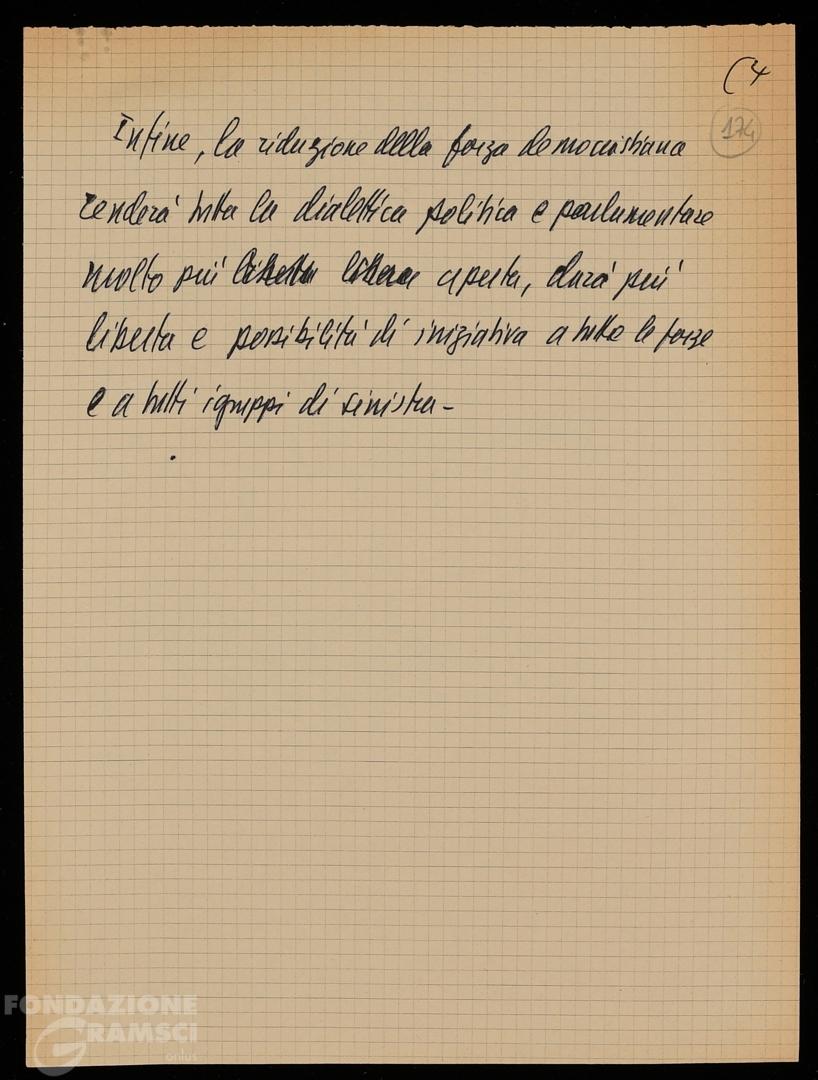 (4
174
Infine, la riduzione della forza democristiana
renderà tutta la dialettica politica e parlamentare
molto più libera aperta, darà più
libertà e possibilità di iniziativa a tutte le forze
e a tutti i gruppi di sinistra –
FONDAZIONE
GRAMSCI
onlus